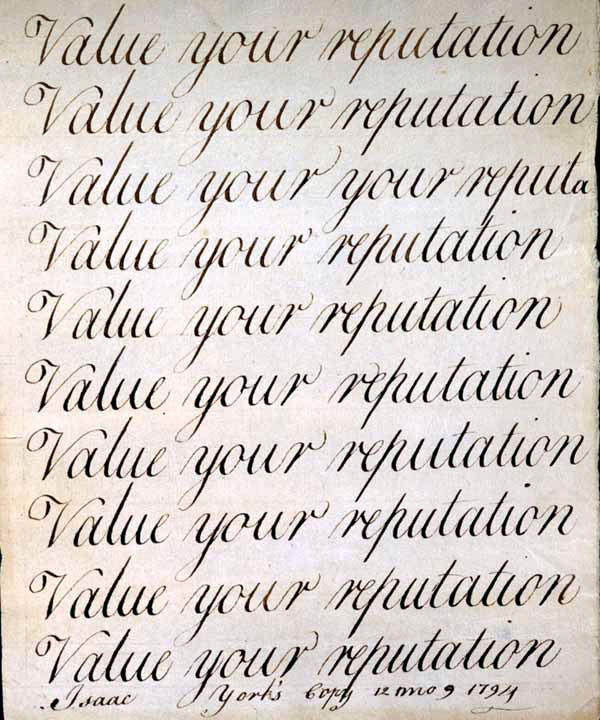 Value your reputation
Value your reputation
Value your your reputa
Value your reputation
Value your reputation
Value your reputation
Value your reputation
Value your reputation
Value your reputation
Value your reputation
Isaac York's Copy 12 mo 9 1794